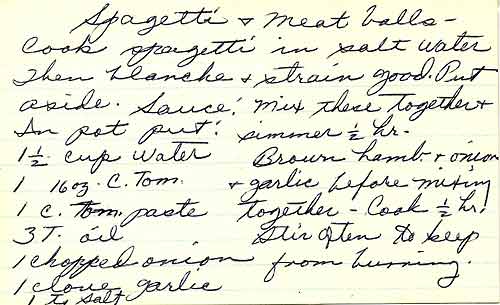 Spagetti & Meat balls -
Cook spagetti in salt water
Then blanche & strain good. Put
aside. Sauce: Mix these together &
In pot put: simmer ½ hr.
1½ cup water Brown hamb. & onion
1 16oz. C. Tom. & garlic before mixing
1 C. Tom. paste together - Cook ½ hr.
3 T. oil Stir often to keep
1 chopped onion from burning.
1 clove garlic
1 T. salt